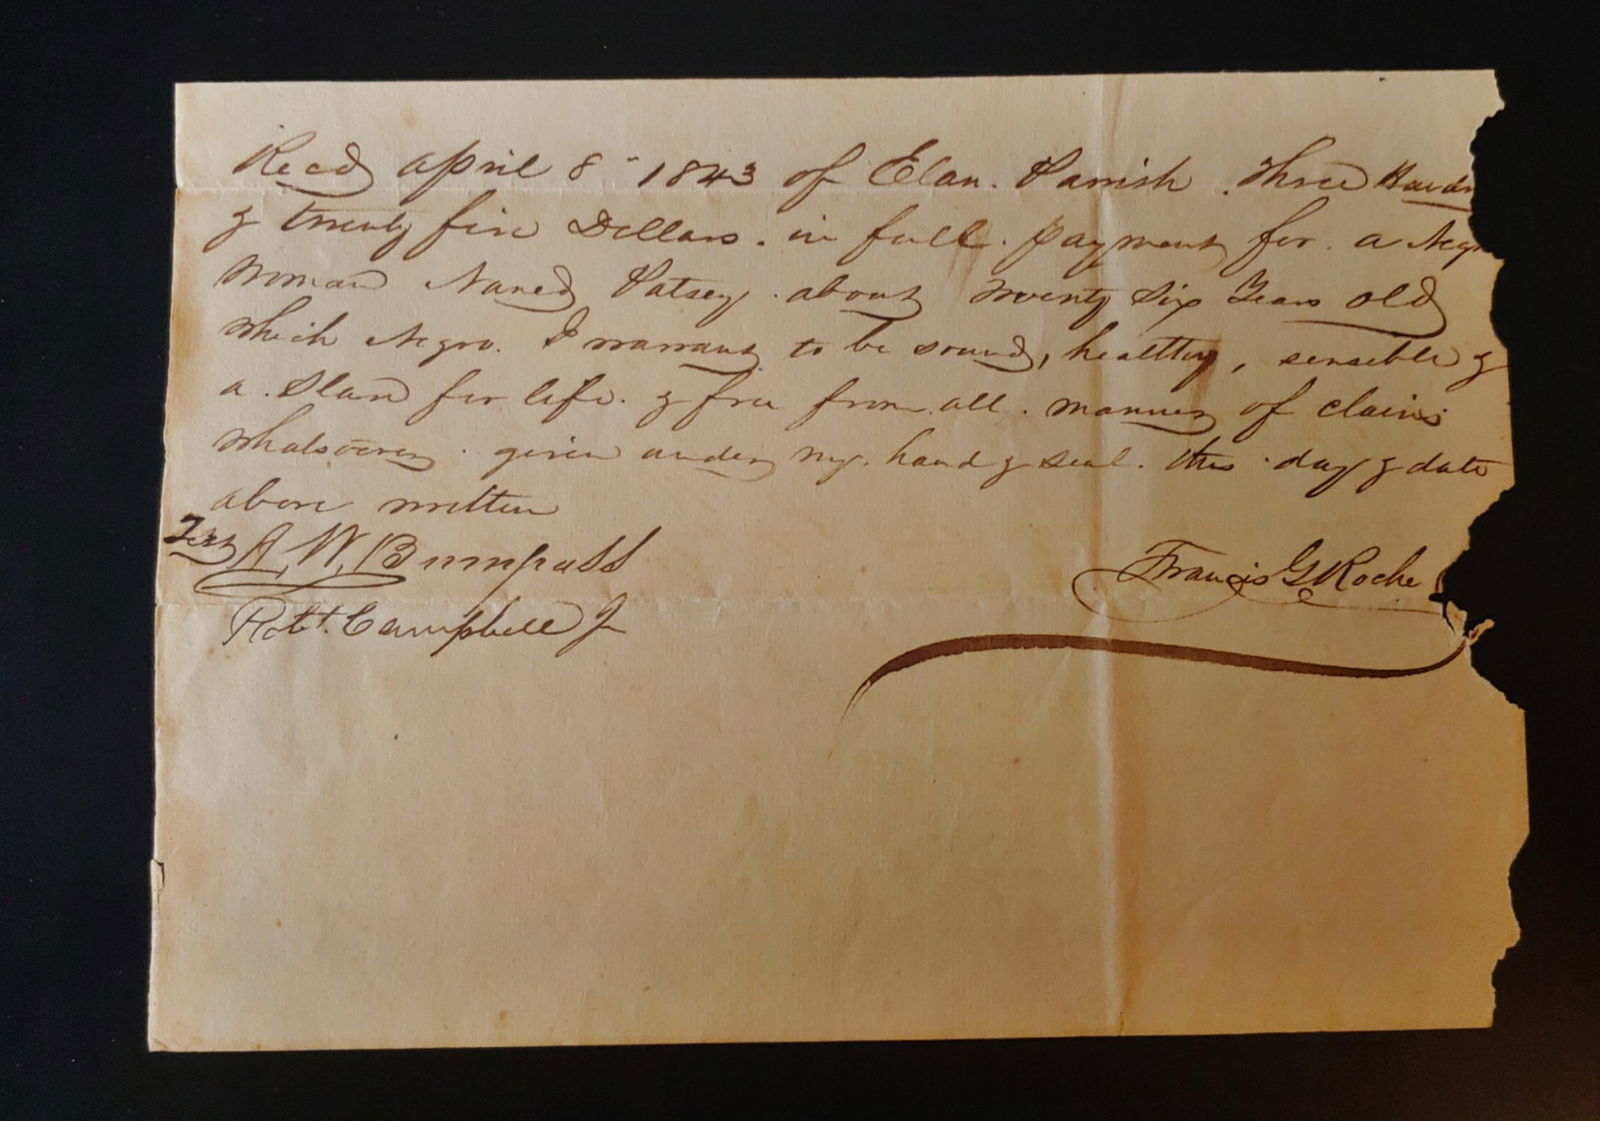 Recd april 8 1843 of Elam. Parrish. Three Hundr
& twenty five Dollars. in full. payment for. a Negr
Woman Named Patsey. about twenty six Years old
which Negro. I warrant to be sound, healthy, sensible &
a. Slave for life. & free from. all. manner of claims
whatsoever. given under my. hand & seal. this day & date
above written
Test A. W. Bumpass
Francis G Roche
Robt. Campbell Jr